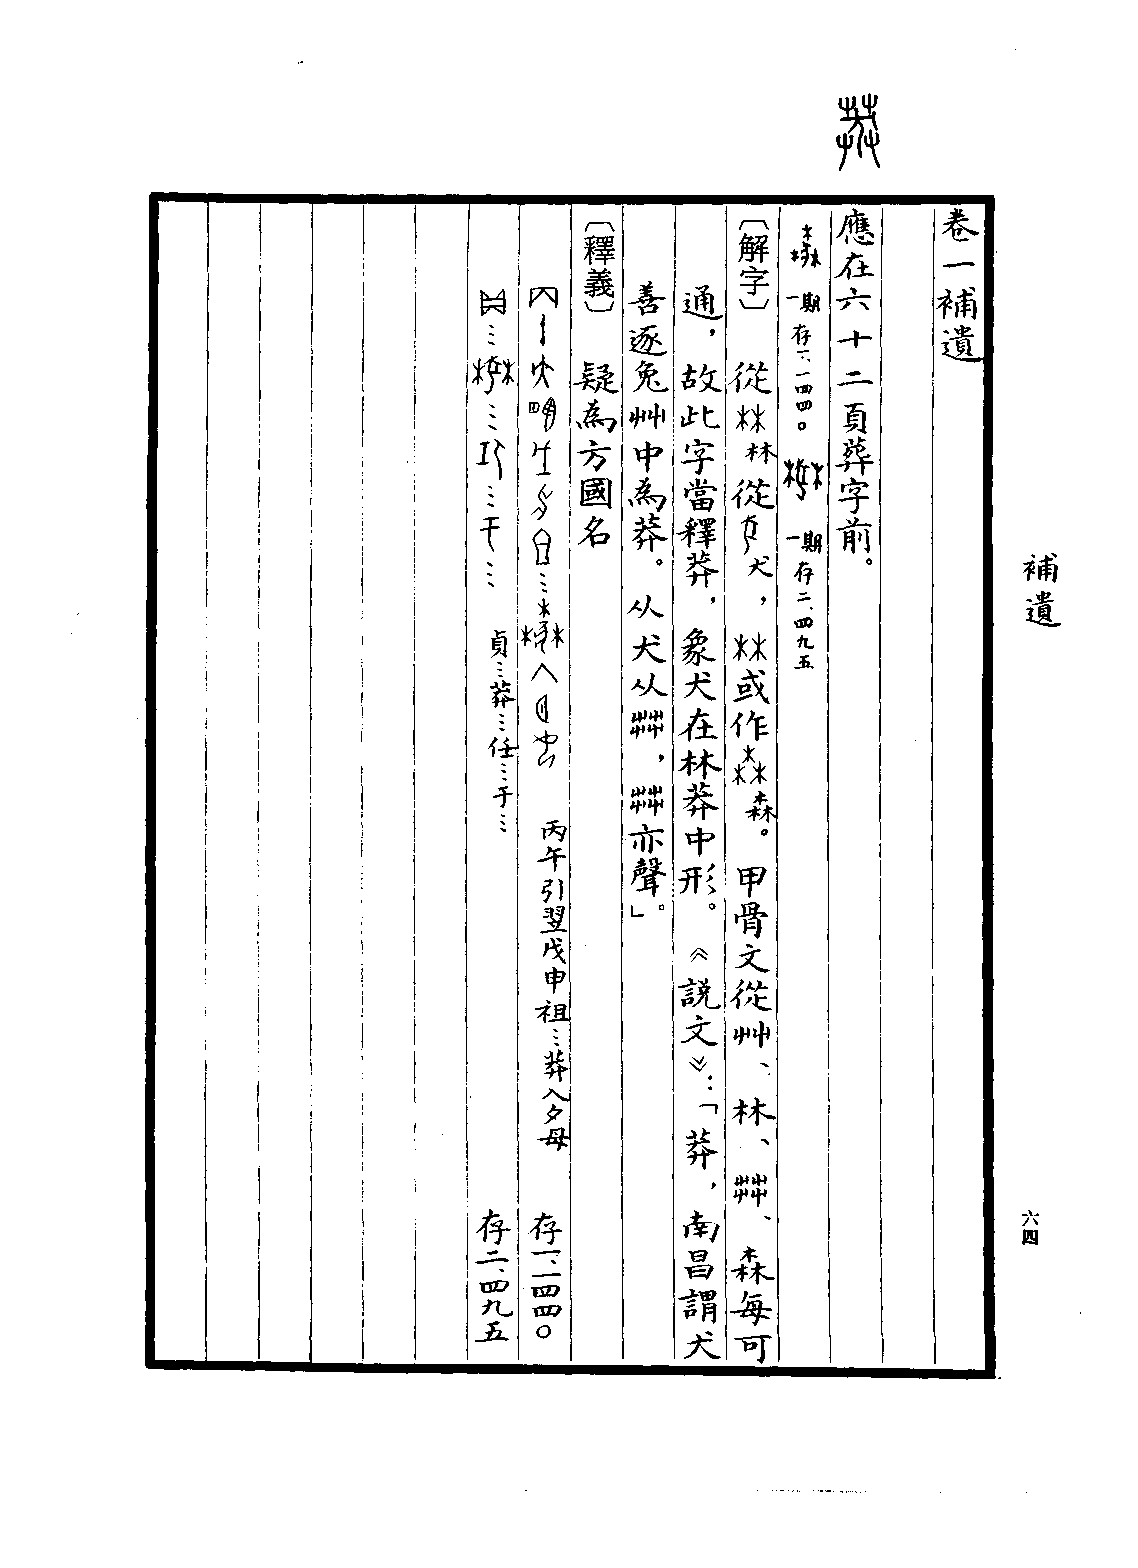 補遺
六四
卷一補遺
應在六十二頁葬字前。
一期 存一、一四四〇 一期 存二、四九五
〔解字〕 從林從犬，或作森。甲骨文從艸、林、茻、森每可
通，故此字當釋莽，象犬在林莽中形。《説文》：「莽，南昌謂犬
善逐兔艸中為莽。从犬从茻，茻亦聲。」
〔釋義〕 疑為方國名
丙午引翌戊申祖⋮莽入夕毋 存一、一四四〇
貞⋮莽⋮任⋮于⋮ 存二、四九五